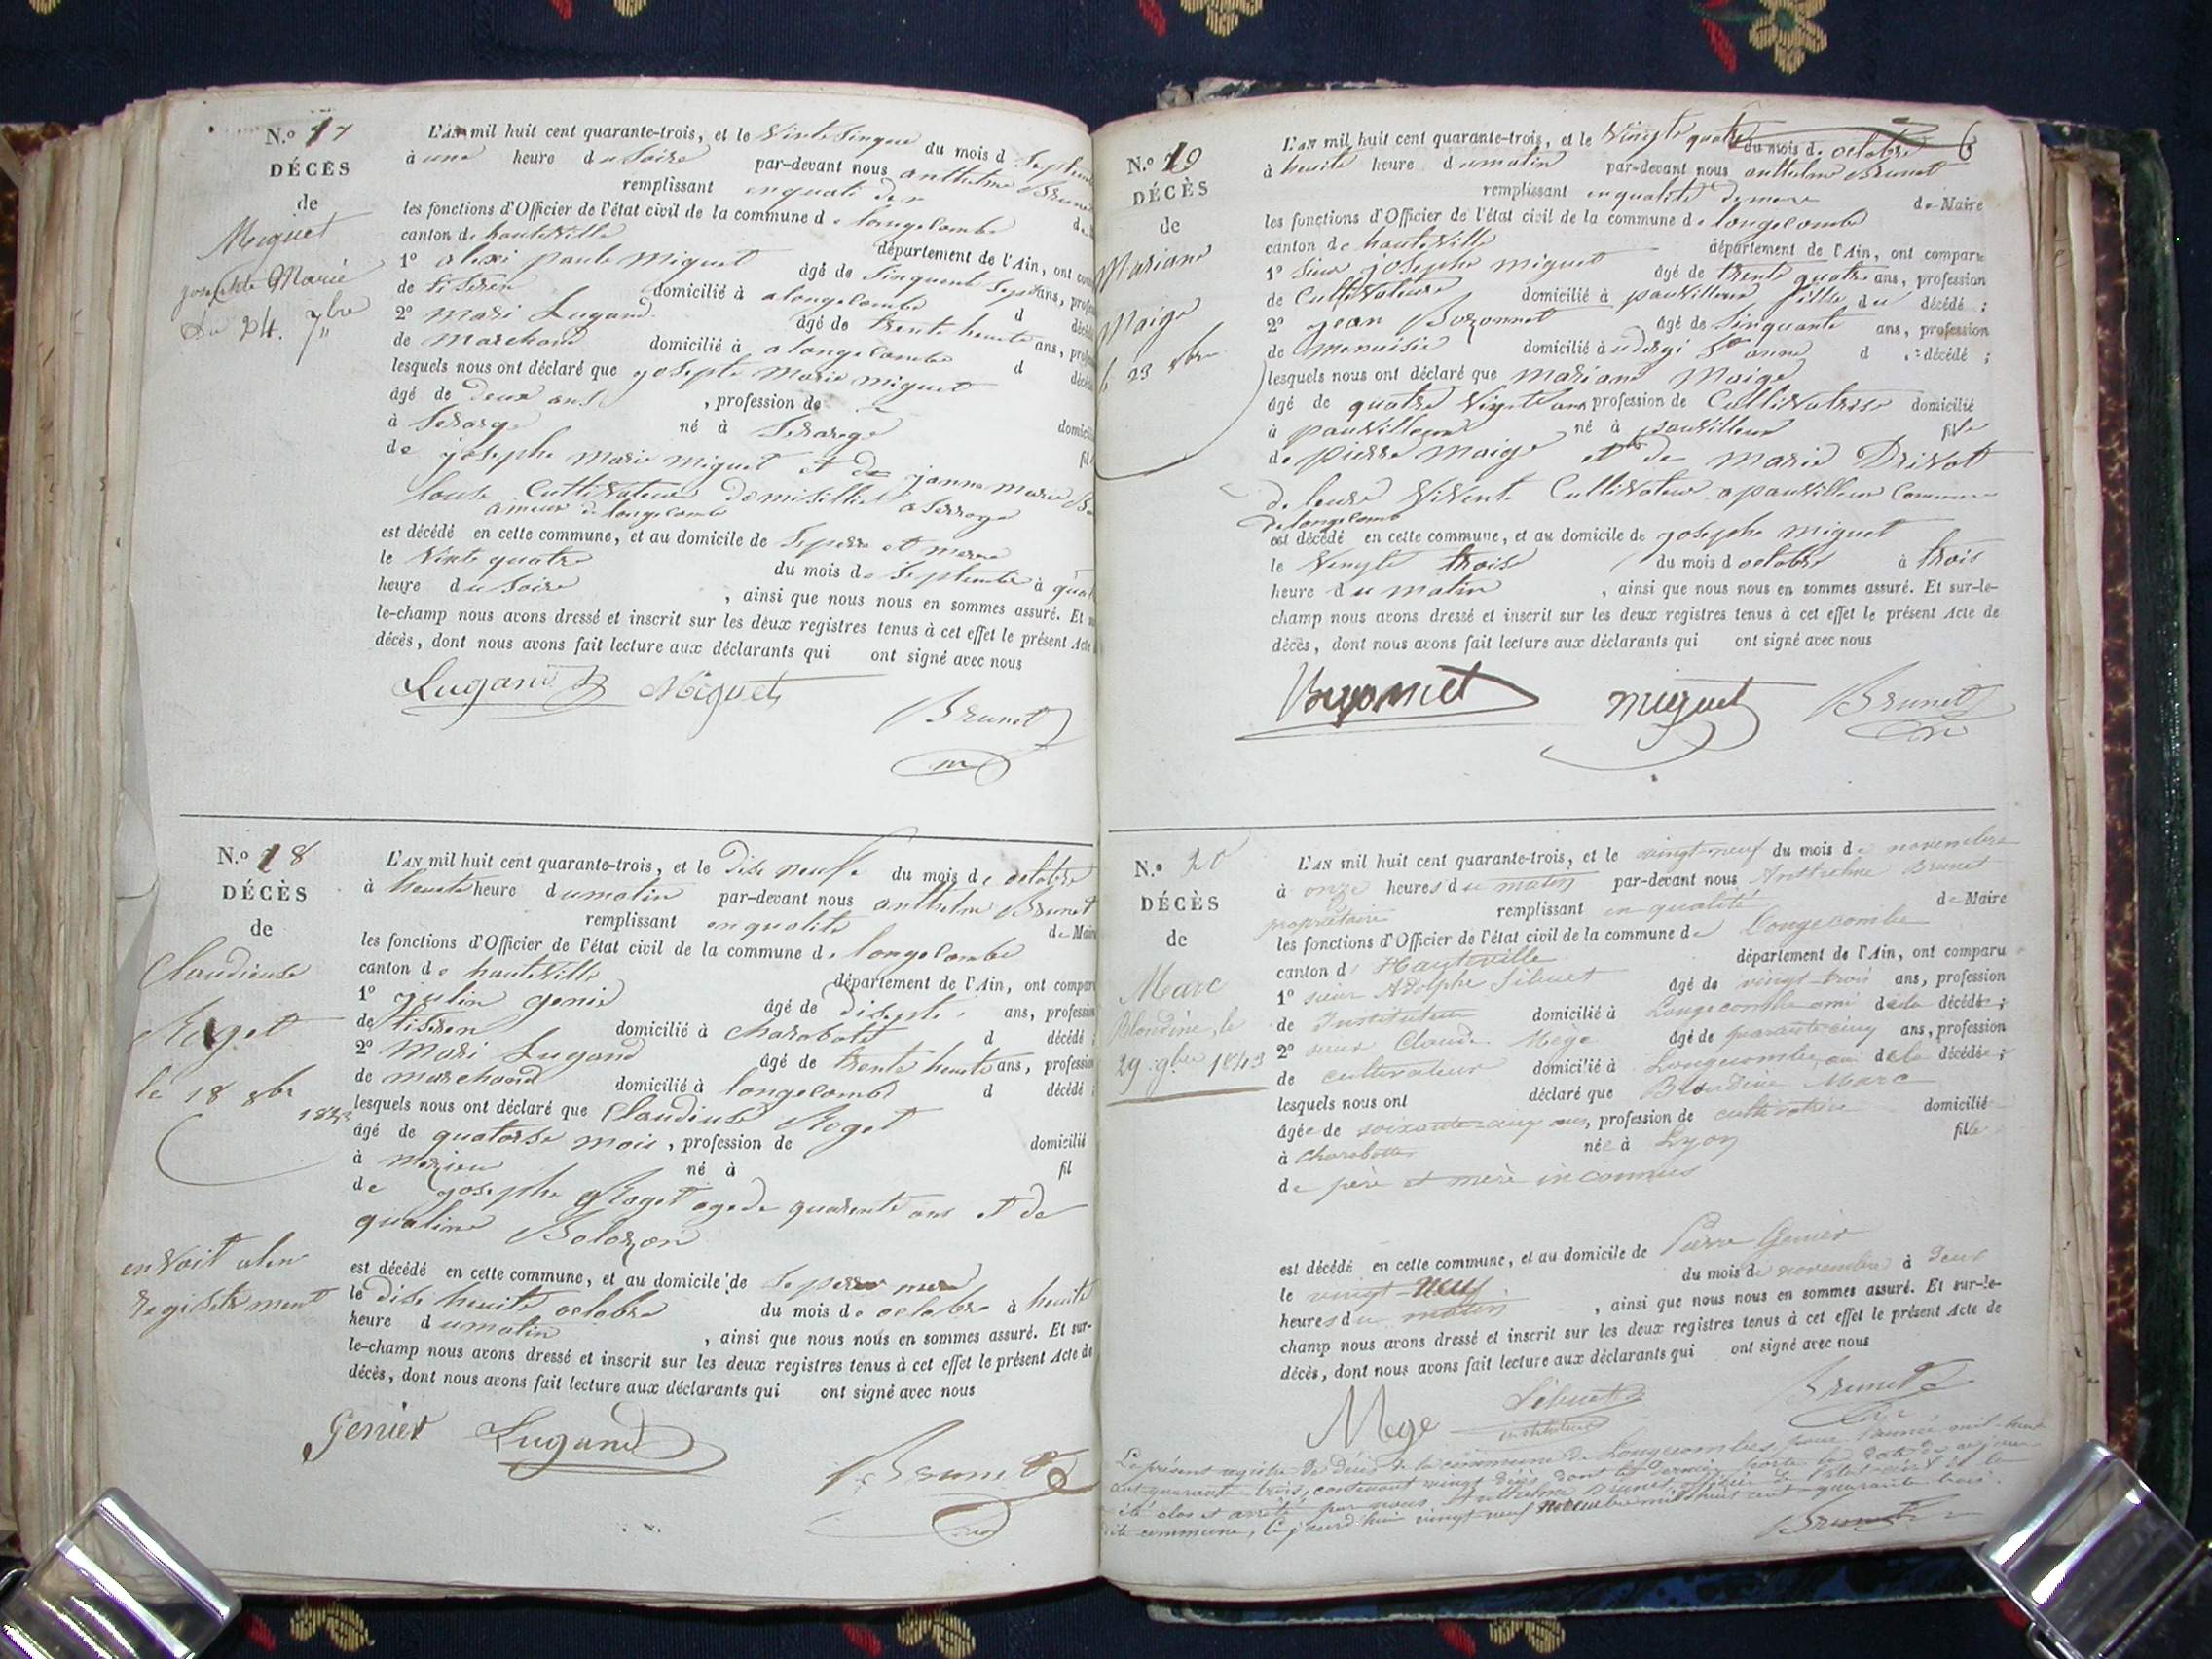 N.o 17
DÉCÈS
de
Miguet
josephte Marie
du 24. 7bre
L'AN mil huit cent quarante-trois, et le Vinte Sinque du mois d Septembre
à une heure du Soire par-devant nous anthelme Brunet
remplissant en quali de
les fonctions d'Officier de l'état civil de la commune de longecombe
canton de hauteville département de l'Ain, ont
1° alexi paule Miguet âgé de Sinquente Sept ans,
de domicilié à a longecombe d
2° Mari Lugand âgé de trente heuite ans,
de Marchand domicilié à a longecombe d
lesquels nous ont déclaré que josepte Marie Miguet
âgé de deux ans , profession de
à Serarge né à Serarege
de josephe Marie Miguet et de janne Marie
Cultivateur domisillié a Serrage
ameux de longecombe
est décédé en cette commune, et au domicile de Se pere et mere
le Vinte quatre du mois de Septembre à
heure du Soire , ainsi que nous nous en sommes assuré. Et
le-champ nous avons dressé et inscrit sur les deux registres tenus à cet effet le présent Acte
décès, dont nous avons fait lecture aux déclarants qui ont signé avec nous
Lugand Miguet
Brunet
N.o 18
DÉCÈS
de
Claudieuse
Roget
le 18 8bre
1843
en Voit alen
registrement
L'AN mil huit cent quarante-trois, et le dise neufe du mois de octobre
à heuite heure du matin par-devant nous anthelme Brunet
remplissant en qualité de Maire
les fonctions d'Officier de l'état civil de la commune de longecombe
canton de hauteville département de l'Ain, ont
1° julin genie âgé de disepte ans, profession
de domicilié à Charabote d décédé
2° Mari Lugand âgé de trente heuite ans, profession
de marchand domicilié à longecombe d décédé
lesquels nous ont déclaré que Claudieuse Roget
âgé de quatorse mois , profession de domicilié
à né à fil
de josephe Roget age de quarente ans et de
Bolozon
est décédé en cette commune, et au domicile de Se pere mere
le dise heuite octobre du mois de octobre à heuite
heure du matin , ainsi que nous nous en sommes assuré. Et sur-
le-champ nous avons dressé et inscrit sur les deux registres tenus à cet effet le présent Acte de
décès, dont nous avons fait lecture aux déclarants qui ont signé avec nous
Genier Lugand
Brunet
6
N.o 19
DÉCÈS
de
Mariane
Maige
23 8bre
L'AN mil huit cent quarante-trois, et le Vingte quatre du mois de octobre
à heuite heure du matin par-devant nous anthelme Brunet
remplissant en qualité de mere de Maire
les fonctions d'Officier de l'état civil de la commune de longecombe
canton de hauteville département de l'Ain, ont comparu
1° Sieur josephe Miguet âgé de trente quatre ans, profession
de Cultivateure domicilié à pauvilleur fille du décédé ;
2° jean Bozonnet âgé de Sinquante ans, profession
de menuisié domicilié à d décédé ;
lesquels nous ont déclaré que Mariane Maige
âgé de quatre Vingte ans profession de Cultivatrise domicilié
à pauvilleur né à pauvilleur fille
de pierre Maige et de Marie Drivot
de leure Vivente Cultivateur a pauvilleur Commune
de longecomb
est décédé en cette commune, et au domicile de josephe Miguet
le Vengte trois du mois d octobre à trois
heure du matin , ainsi que nous nous en sommes assuré. Et sur-le-
champ nous avons dressé et inscrit sur les deux registres tenus à cet effet le présent Acte de
décès, dont nous avons fait lecture aux déclarants qui ont signé avec nous
Bozonnet Miguet Brunet
N.o 20
DÉCÈS
de
Marc
Blondine, le
29 9bre 1843
L'AN mil huit cent quarante-trois, et le vingt-neuf du mois de novembre
à onze heures du matin par-devant nous Anthelme Brunet
propriétaire remplissant en qualité de Maire
les fonctions d'Officier de l'état civil de la commune de Longecombe
canton d' Hauteville département de l'Ain, ont comparu
1° sieur Adolphe Sibuet âgé de vingt-trois ans, profession
de Instituteur domicilié à Longecombe ami de la décédée ;
2° sieur Claude Mège âgé de quarante-cinq ans, profession
de cultivateur domicilié à Longecombe, ami de la décédée ;
lesquels nous ont déclaré que Blondine Marc
âgée de soixante-cinq ans, profession de cultivatrice domicilié
à Charabotte née à Lyon fille
de père et mère inconnus
est décédé en cette commune, et au domicile de Pierre Genier
le vingt-neuf du mois de novembre à deux
heures du matin , ainsi que nous nous en sommes assuré. Et sur-le-
champ nous avons dressé et inscrit sur les deux registres tenus à cet effet le présent Acte de
décès, dont nous avons fait lecture aux déclarants qui ont signé avec nous
Mege Sibuet Brunet
instituteur
Le présent registre de décès de la commune de Longecombes, pour l'année mil-huit
cent-quarante trois, contenant vingt décès dont le dernier porte la date de ce jour
a été clos et arrêté par nous Anthelme Brunet, officier de l'état-civil de la
dite commune, ce jourd'hui vingt-neuf novembre mil huit cent quarante trois.
Brunet